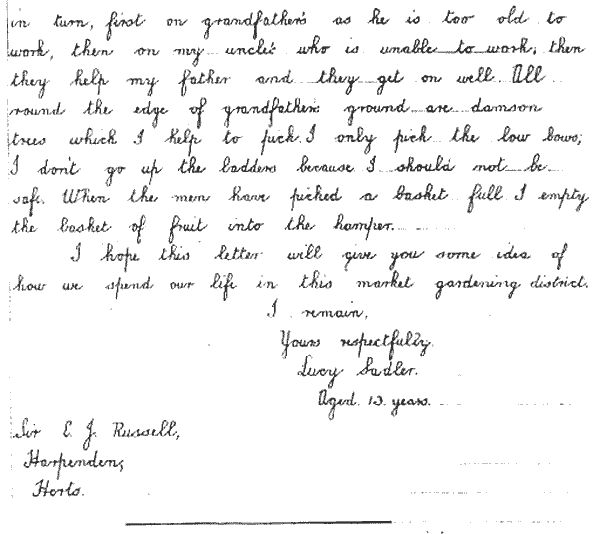 in turn, first on grandfather's as he is too old to
work, then on my uncle's who is unable to work; then
they help my father and they get on well. All
round the edge of grandfather's ground are damson
trees which I help to pick. I only pick the low bows;
I don't go up the ladders because I should not be
safe. When the men have picked a basket full I empty
the basket of fruit into the hamper.
I hope this letter will give you some idea of
how we spend our life in this market gardening district.
I remain,
Yours respectfully.
Lucy Sadler.
Aged years.
Sir E. J. Russell,
Harpenden,
Herts.